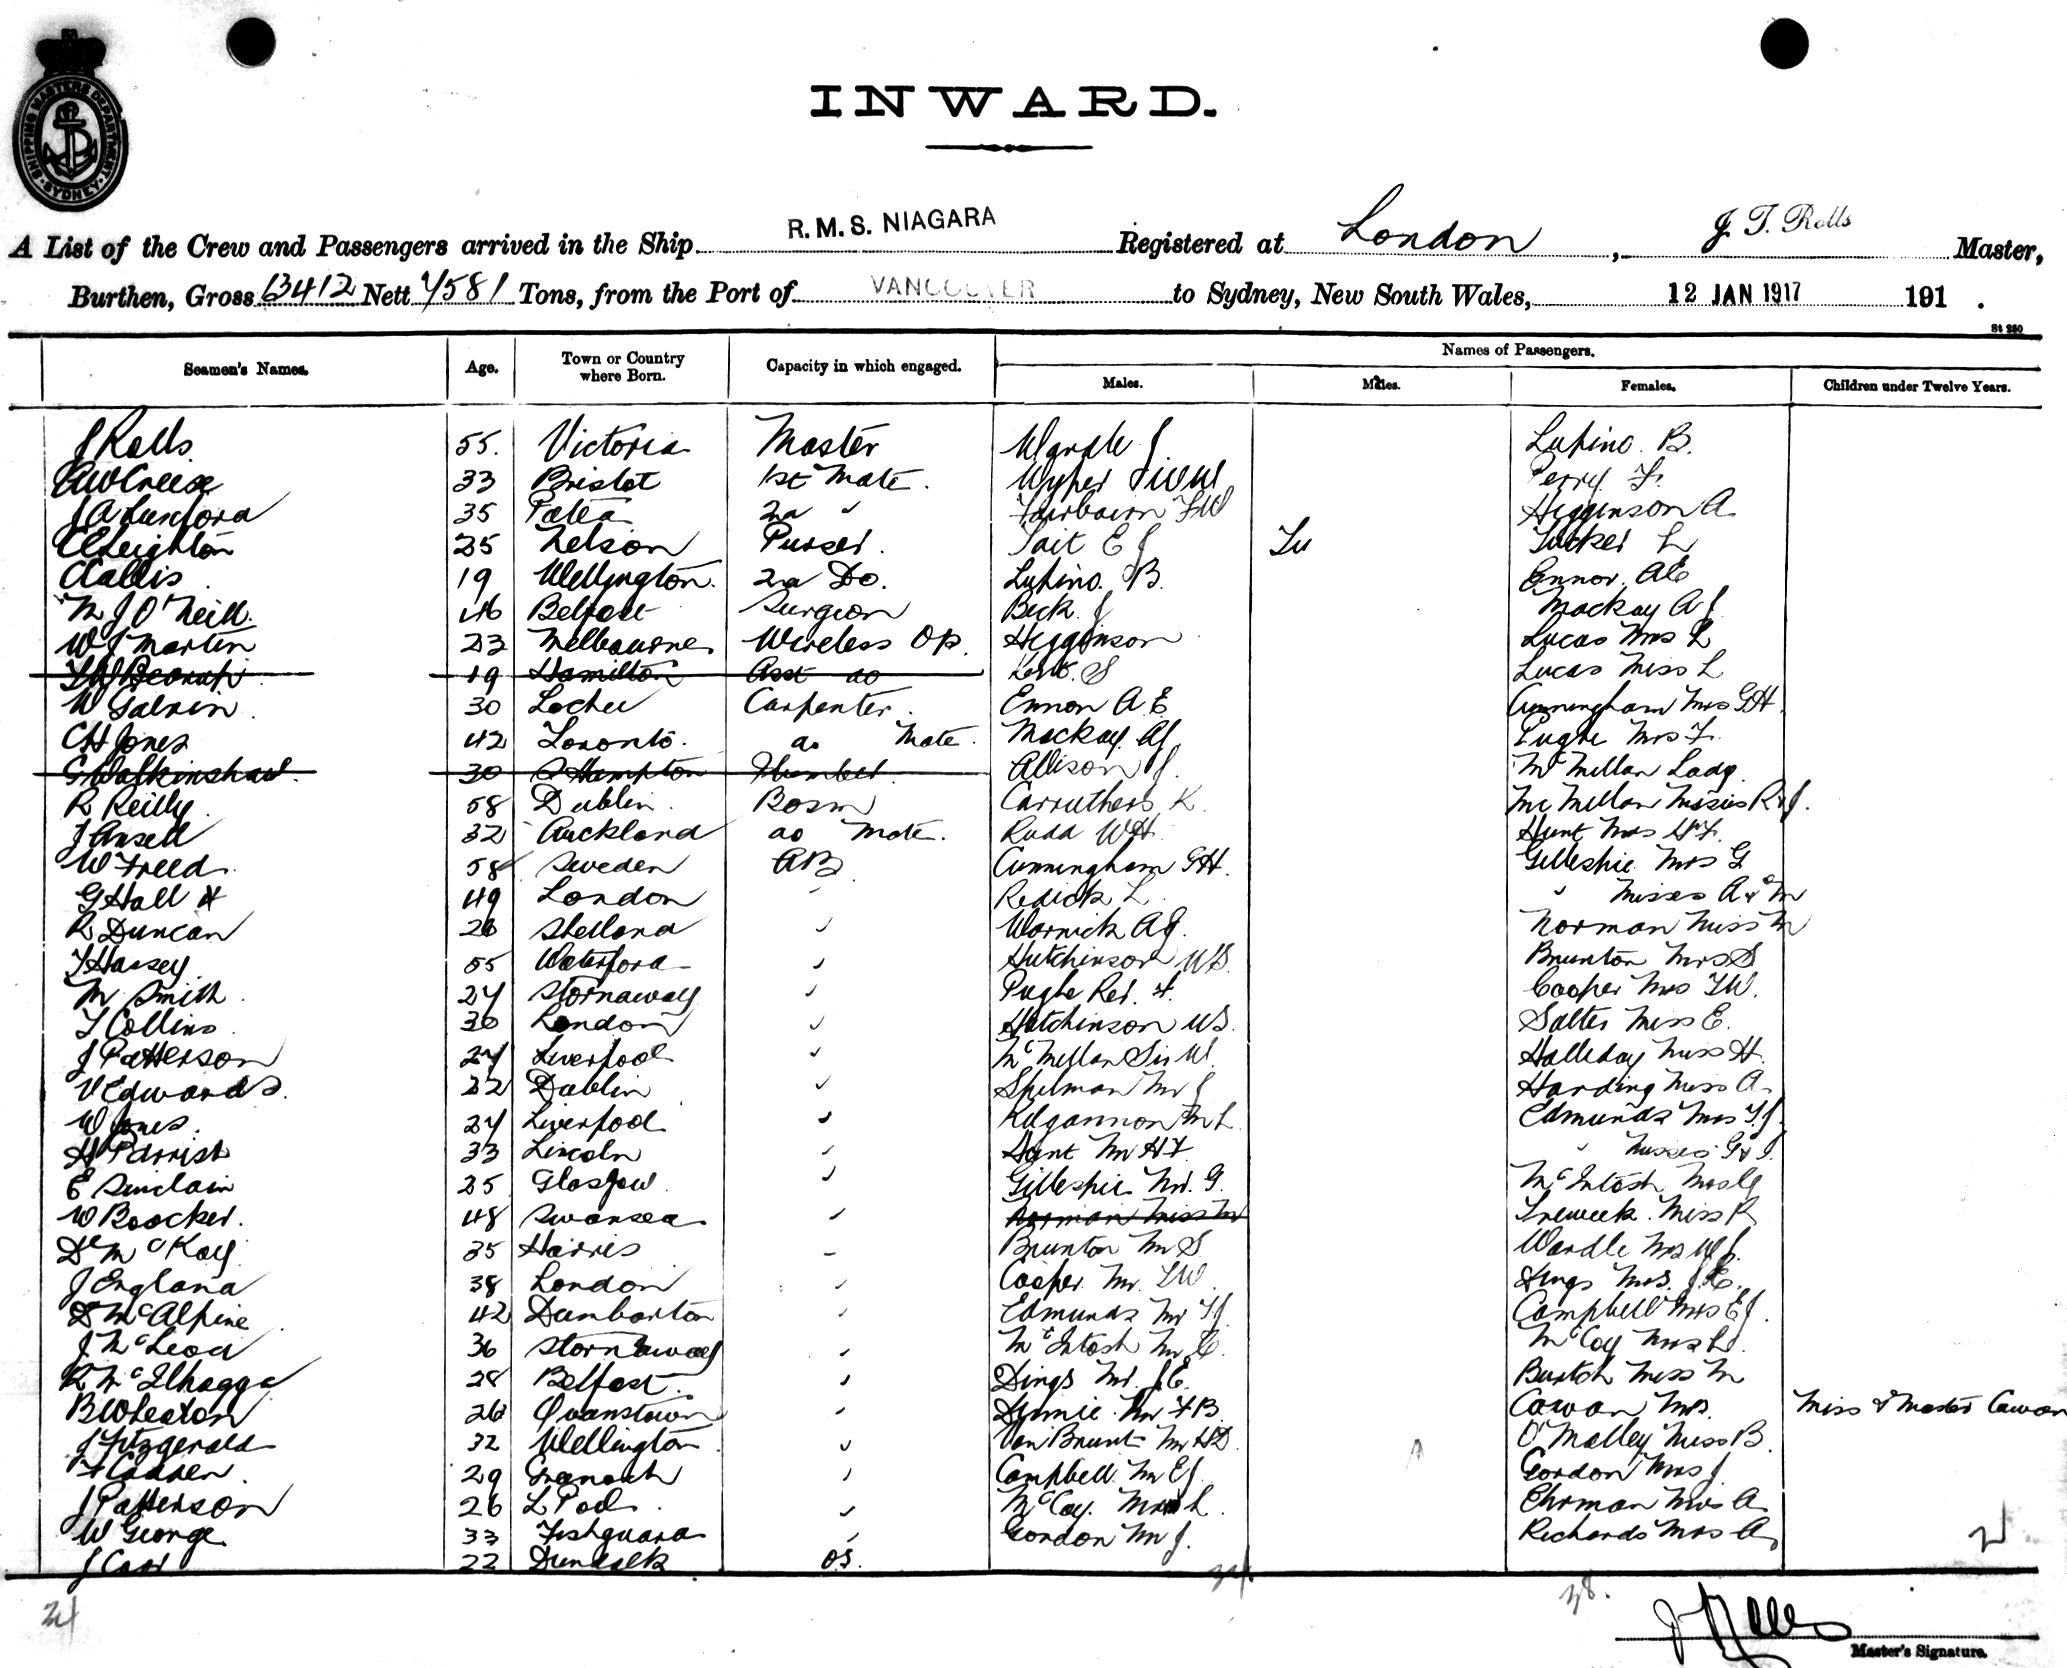 SHIPPING MASTERS DEPARTMENT
SYDNEY
INWARD.
A List of the Crew and Passengers arrived in the Ship R.M.S. NIAGARA Registered at London, J. T. Rolls Master,
Burthen, Gross 13412 Nett 7581 Tons, from the Port of VANCOUVER to Sydney, New South Wales, 12 JAN 1917 191 .
St 250
Seamen's Names. Age. Town or Country where Born. Capacity in which engaged. Names of Passengers.
Males. Males. Females. Children under Twelve Years.
J Rolls 55. Victoria Master Wardle J Lupino B.
33 Bristol 1st Mate. Wyper Perry F.
J A Lunford 35 Patea 2nd " Fairbairn FW Higginson A
Leighton 25 Nelson Purser. Tait E J Tu Tucker L
19 Wellington. 2nd Do. Lupino. B. Ennor. AE
M J O'Neill. 46 Belfast Surgeon Beck. J Mackay A J.
W J Martin 23 Melbourne Wireless Op. Higginson Lucas Mrs L
19 Hamilton Asst do S Lucas Miss L
W Galvin. 30 Lochee Carpenter. Ennon A. E. Cunningham Mrs GH.
CH Jones 42 Toronto. do Mate. Mackay. AJ Pughe Mrs F.
G Walkinshaw. 30 S Hampton Plumber. Allison J. McMillan Lady.
R Reilly. 58 Dublin. Bosn Carruthers K. Mc Millan Misses R & J.
J Ansell 32 Auckland do Mate. Rudd WH. Hunt Mrs H.F.
W Freed. 58 Sweden AB Cunningham GH. Gillespie Mrs G
G Hall 49 London " Redick L. " Misses A & M
R Duncan 26 Shetland " Warnick AJ. Norman Miss M
T Hassey. 55 Waterford " Hutchinson WS. Brunton Mrs S
M Smith. 27 Stornaway " Pughe Rev. F. Cooper Mrs FW.
T Collins. 30 London " Hutchinson WS. Salter Miss E.
J Patterson 27 Liverpool " McMillan Sir W. Halliday Miss H.
V Edwards. 22 Dublin " Spilman Mr J Harding Miss A.
W Jones. 27 Liverpool. " Kilgannon Mr L Edmunds Mrs T.J.
H Parrish 33 Lincoln " Hunt Mr HF. " Misses G & J.
E Sinclair 25 Glasgow. " Gillespie Mr. G. McIntosh Mrs C
W Boocker. 48 Swansea " Norman Miss M Treweek. Miss R
D McKay. 35 Harris " Brunton Mr S Wardle Mrs W J.
J England 38 London " Cooper. Mr. FW. Dings Mrs. J.E.
D McAlpine 42 Dumbarton " Edmunds Mr TJ Campbell Mrs EJ.
J McLeod 36 Stornaway " McIntosh Mr C. McCoy Mrs L.
R McIlhagga 28 Belfast. " Dings Mr. J.E. Burtch Miss M
B Wheaton 26 " Mr F.B. Cowan Mrs. Miss & Master Cowan
J Fitzgerald 32 Wellington " Van Brunt Mr HD. O'Malley Miss B.
29 Greenock " Campbell. Mr EJ. Gordon Mrs J.
J Patterson 26 L Pool. " McCoy. L. Ehrman Mrs A
W George. 33 Fishguard " Gordon Mr J. Richards Mrs A 2
22 Dundalk OS.
38.
J Rolls
Master's Signature.